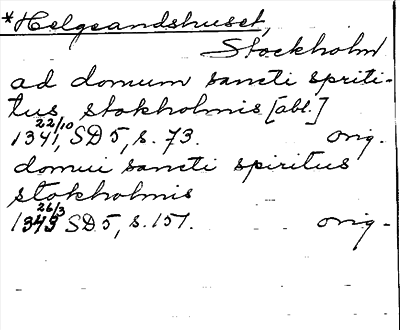 *Helgeandshuset,
Stockholm
ad domum sancti spriti-
tus stokholmis [abl.]
1341 22/10, SD 5, s. 73. orig.
domui sancti spiritus
stokholmis
1345 26/3 SD 5, s. 151. orig.